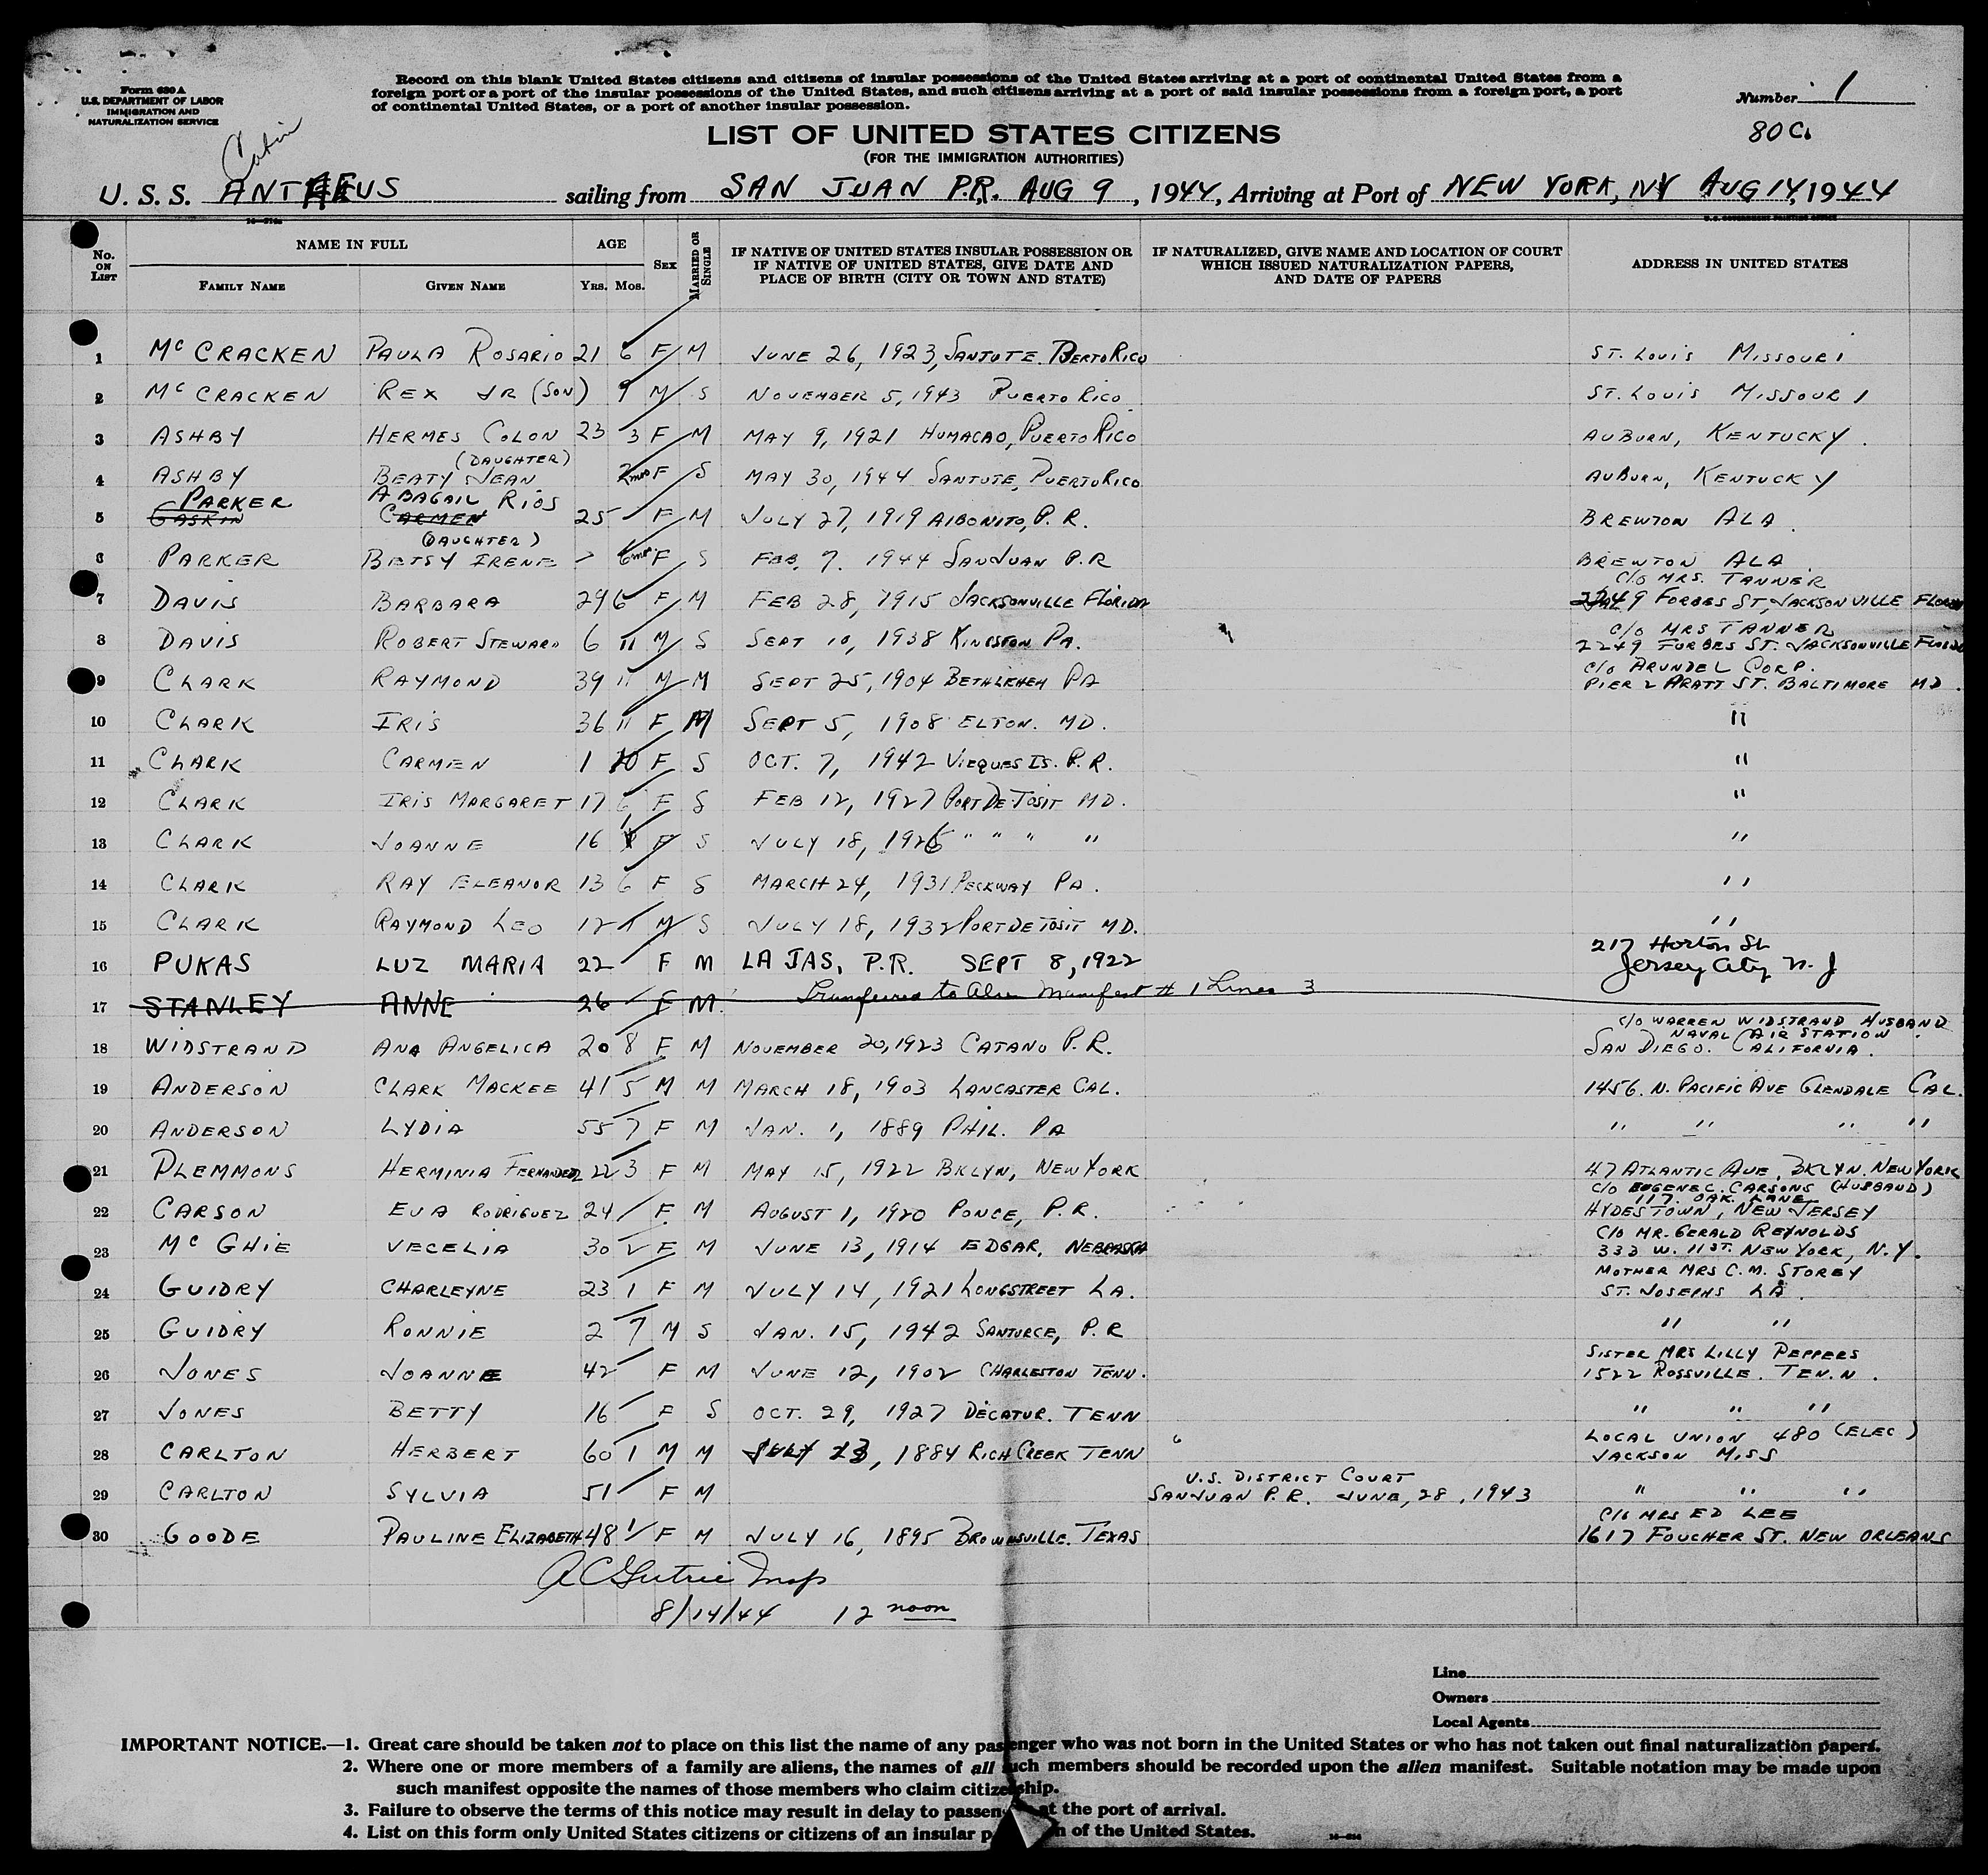 Form 630 A
U.S. DEPARTMENT OF LABOR
IMMIGRATION AND
NATURALIZATION SERVICE
Cabin
Record on this blank United States citizens and citizens of insular possessions of the United States arriving at a port of continental United States from a
foreign port or a port of the insular possessions of the United States, and such citizens arriving at a port of said insular possessions from a foreign port, a port
of continental United States, or a port of another insular possession.
Number 1
80 C.
LIST OF UNITED STATES CITIZENS
(FOR THE IMMIGRATION AUTHORITIES)
U. S. S. ANTAEUS sailing from SAN JUAN P.R. AUG 9, 1944, Arriving at Port of NEW YORK, NY AUG 14, 1944
No. ON LIST
NAME IN FULL
FAMILY NAME
GIVEN NAME
AGE
YRS. MOS.
SEX
MARRIED OR SINGLE
IF NATIVE OF UNITED STATES INSULAR POSSESSION OR
IF NATIVE OF UNITED STATES, GIVE DATE AND
PLACE OF BIRTH (CITY OR TOWN AND STATE)
IF NATURALIZED, GIVE NAME AND LOCATION OF COURT
WHICH ISSUED NATURALIZATION PAPERS,
AND DATE OF PAPERS
ADDRESS IN UNITED STATES
1 McCRACKEN PAULA ROSARIO 21 6 F M JUNE 26, 1923, SANTUTE. PUERTO RICO ST. LOUIS MISSOURI
2 McCRACKEN REX JR (SON) 9 M S NOVEMBER 5, 1943 PUERTO RICO ST. LOUIS MISSOURI
3 ASHBY HERMES COLON 23 3 F M MAY 9, 1921 HUMACAO, PUERTO RICO AUBURN, KENTUCKY.
(DAUGHTER)
4 ASHBY BEATY JEAN 2mos F S MAY 30, 1944 SANTUTE, PUERTO RICO AUBURN, KENTUCKY
PARKER ABAGAIL RIOS
5 GASKIN CARMEN 25 F M JULY 27, 1919 AIBONITO, P.R. BREWTON ALA.
(DAUGHTER)
6 PARKER BETSY IRENE 6mos F S FEB, 7. 1944 SAN JUAN P.R BREWTON ALA.
C/O MRS. TANNER
7 DAVIS BARBARA 29 6 F M FEB 28, 1915 JACKSONVILLE FLORIDA 2249 FORBES ST, JACKSONVILLE FLORIDA
C/O MRS TANNER
8 DAVIS ROBERT STEWARD 6 11 M S SEPT 10, 1938 KINGSTON PA. 2249 FORBES ST. JACKSONVILLE FLORIDA
C/O ARUNDEL CORP.
9 CLARK RAYMOND 39 11 M M SEPT 25, 1904 BETHLEHEM PA PIER 2 PRATT ST. BALTIMORE MD.
10 CLARK IRIS 36 11 F M SEPT 5, 1908 ELTON. MD. "
11 CLARK CARMEN 1 10 F S OCT. 7, 1942 VIEQUES IS. P.R. "
12 CLARK IRIS MARGARET 17 6 F S FEB 12, 1927 PORT DE TOSIT MD. "
13 CLARK JOANNE 16 1 F S JULY 18, 1926 " " " " "
14 CLARK RAY ELEANOR 13 6 F S MARCH 24, 1931 PECKWAY PA. "
15 CLARK RAYMOND LEO 12 1 M S JULY 18, 1932 PORT DE TOSIT MD. "
217 Horton St.
16 PUKAS LUZ MARIA 22 F M LAJAS, P.R. SEPT 8, 1922 Jersey City N. J
17 STANLEY ANNE 26 F M. Transferred to Alien Manifest # 1 Lines 3
C/O WARREN WIDSTRAND HUSBAND
NAVAL AIR STATION.
18 WIDSTRAND ANA ANGELICA 20 8 F M NOVEMBER 20, 1923 CATANO P.R. SAN DIEGO. CALIFORNIA.
19 ANDERSON CLARK MACKEE 41 5 M M MARCH 18, 1903 LANCASTER CAL. 1456. N. PACIFIC AVE GLENDALE CAL.
20 ANDERSON LYDIA 55 7 F M JAN. 1, 1889 PHIL. PA " " " "
21 PLEMMONS HERMINIA FERNANDEZ 22 3 F M MAY 15, 1922 BKLYN, NEW YORK 47 ATLANTIC AVE, BKLYN. NEW YORK
C/O EUGENE C. CARSONS (HUSBAND)
117. OAK LANE
22 CARSON EVA RODRIGUEZ 24 F. M AUGUST 1, 1920 PONCE, P.R. HYDESTOWN, NEW JERSEY
C/O MR. GERALD REYNOLDS
23 McGHIE VECELIA 30 2 F M JUNE 13, 1914 EDGAR, NEBRASKA 333 W. 11 ST. NEW YORK, N.Y.
MOTHER MRS C.M. STOREY
24 GUIDRY CHARLEYNE 23 1 F M JULY 14, 1921 LONGSTREET LA. ST. JOSEPHS LA.
25 GUIDRY RONNIE 2 7 M S JAN. 15, 1942 SANTURCE, P.R " "
SISTER MRS LILLY PEPPERS
26 JONES JOANNE 42 F M JUNE 12, 1902 CHARLESTON TENN. 1522 ROSSVILLE. TEN.N.
27 JONES BETTY 16 F S OCT. 29, 1927 DECATUR. TENN " " "
LOCAL UNION 480 (ELEC)
28 CARLTON HERBERT 60 1 M M JULY 23, 1884 RICH CREEK TENN JACKSON MISS
U.S. DISTRICT COURT
29 CARLTON SYLVIA 51 F M SAN JUAN P.R. JUNE, 28, 1943 " " "
C/O MRS ED LEE
30 GOODE PAULINE ELIZABETH 48 1 F M JULY 16, 1895 BROWNSVILLE. TEXAS 1617 FOUCHER ST. NEW ORLEANS
A C Gutrie Insp
8/14/44 12 noon
Line
Owners
Local Agents
IMPORTANT NOTICE.—1. Great care should be taken not to place on this list the name of any passenger who was not born in the United States or who has not taken out final naturalization papers.
2. Where one or more members of a family are aliens, the names of all such members should be recorded upon the alien manifest. Suitable notation may be made upon
such manifest opposite the names of those members who claim citizenship.
3. Failure to observe the terms of this notice may result in delay to passen at the port of arrival.
4. List on this form only United States citizens or citizens of an insular p n of the United States.